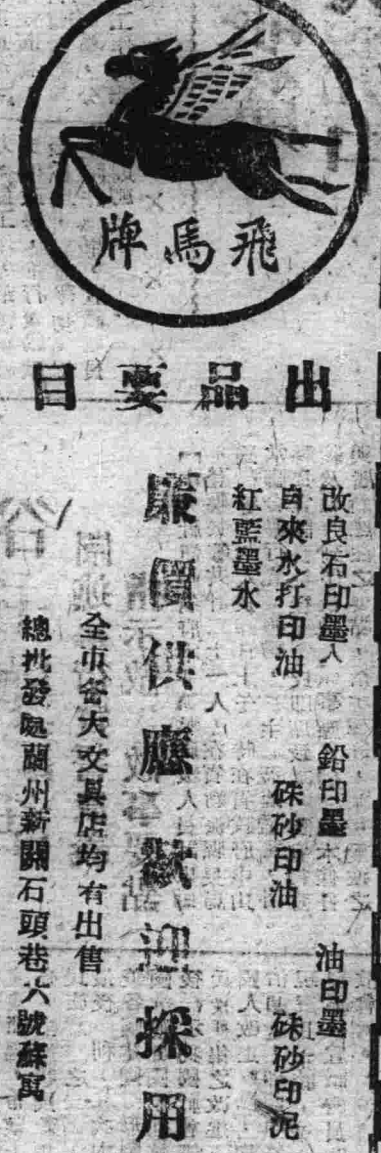 飛馬牌
出品要目
改良石印墨 鉛印墨 油印墨
自來水打印油 硃砂印油 硃砂印泥
紅藍墨水
廉價供應歡迎採用
全市各大文具店均有出售
總批發處蘭州新關石頭巷六號蘇寓